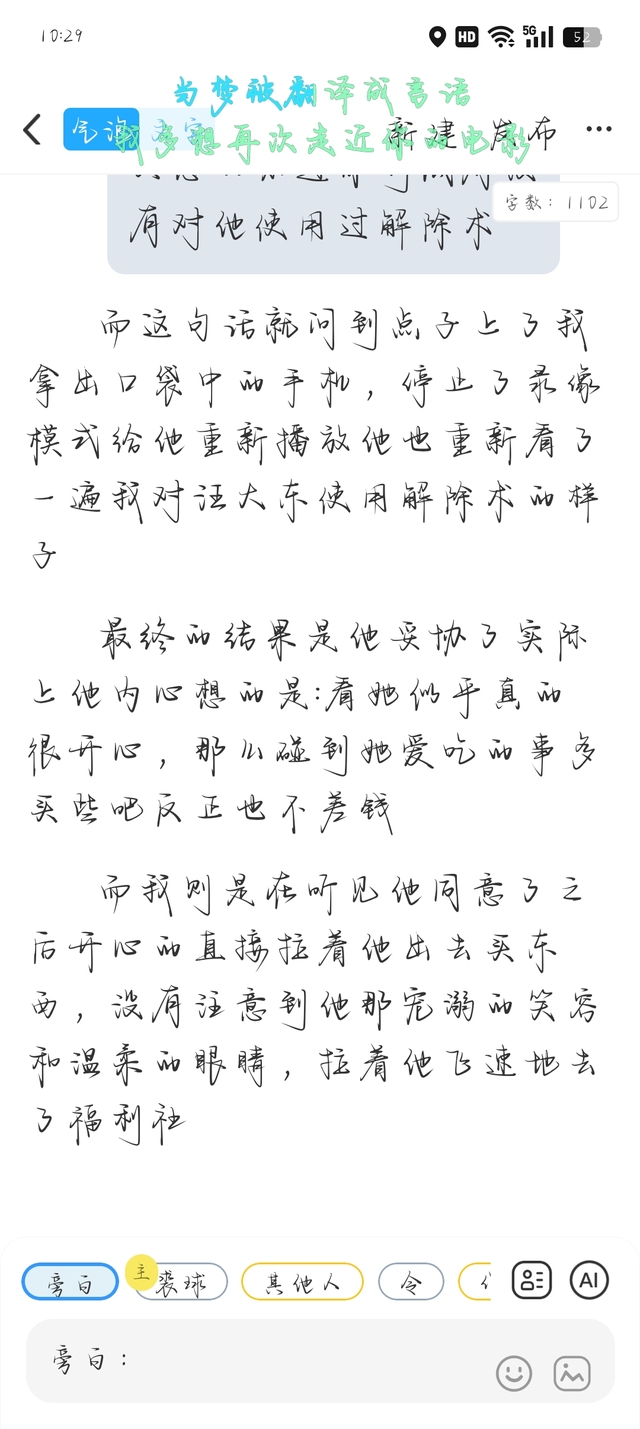 10:29
HD
5G
52
当梦被翻译成言话
我多想再次走近你的电影
气泡
新建
发布
字数：1102
有对他使用过解除术
而这句话就问到点子上了我
拿出口袋中的手机，停止了录像
模式给他重新播放他也重新看了
一遍我对汪大东使用解除术的样
子
最终的结果是他妥协了实际
上他内心想的是:看她似乎真的
很开心，那么碰到她爱吃的事多
买些吧反正也不差钱
而我则是在听见他同意了之
后开心的直接拉着他出去买东
西，没有注意到他那宠溺的笑容
和温柔的眼睛，拉着他飞速地去
了福利社
旁白
主
裘球
其他人
令
AI
旁白：